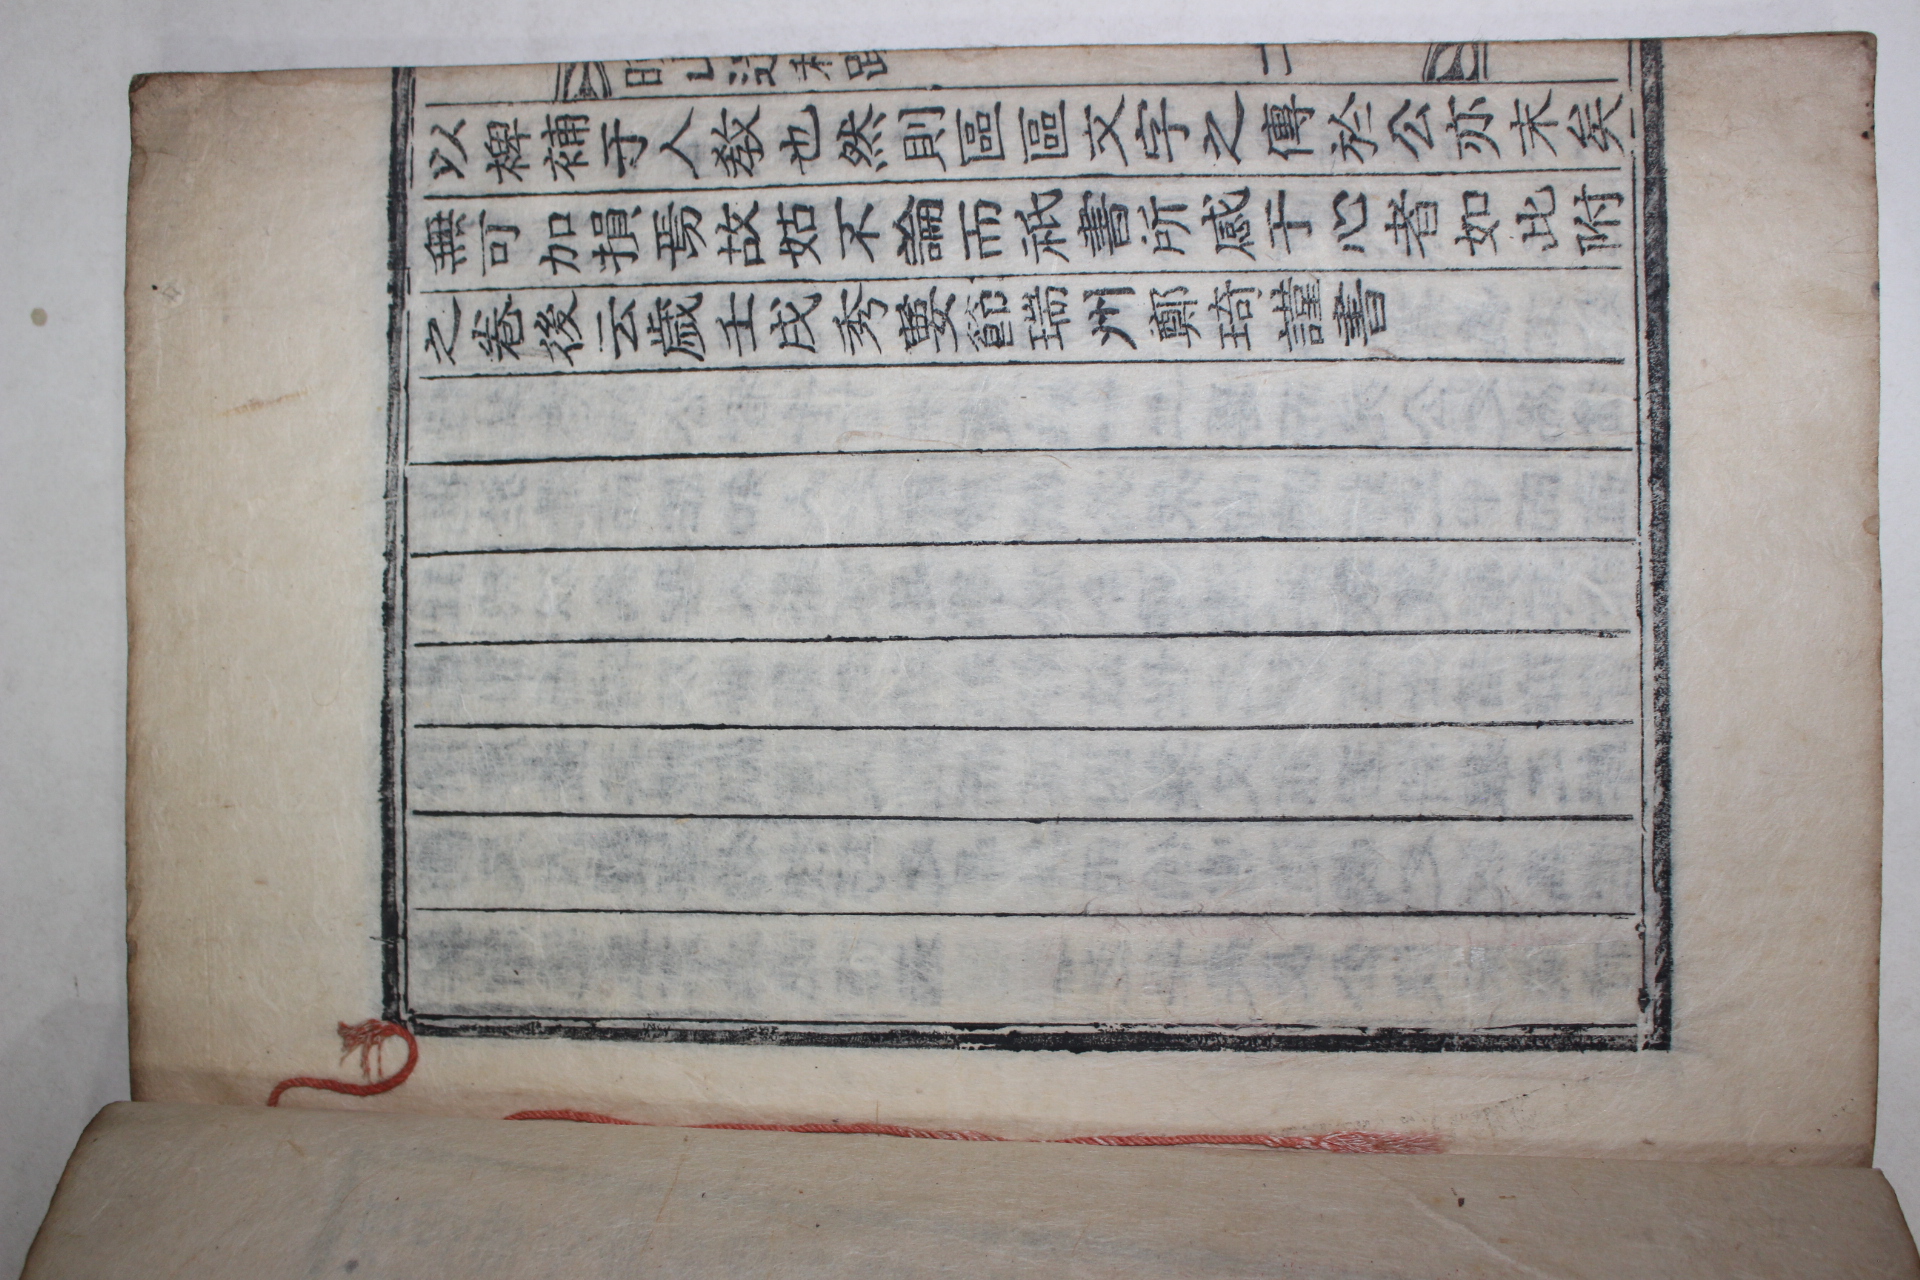 山遺稿跋 二
以裨補于人敎也然則區區文字之傳於公亦末矣
無可加損焉故姑不論而祗書所感于心者如此附
之卷後云歲壬戌秀葽節瑞州鄭琦謹書